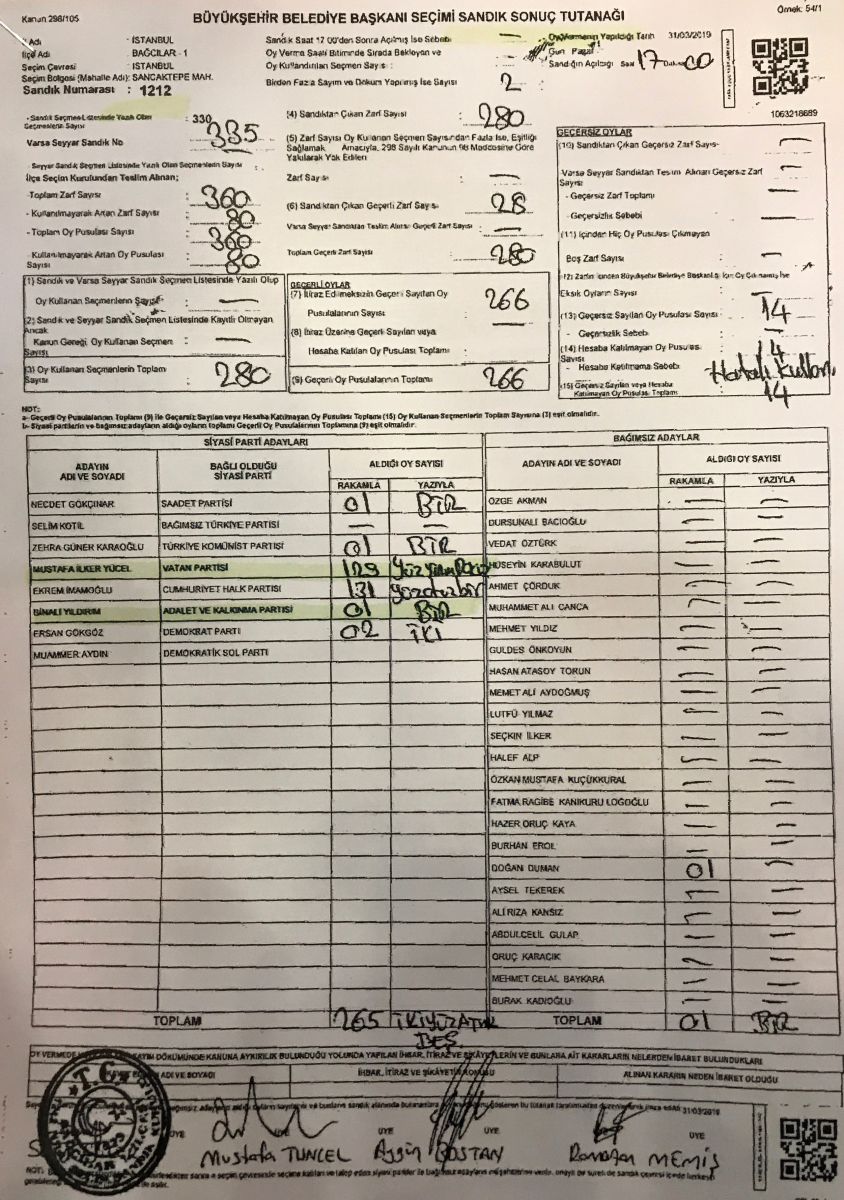 Kanun 298/105
BÜYÜKŞEHİR BELEDİYE BAŞKANI SEÇİMİ SANDIK SONUÇ TUTANAĞI
Örnek: 54/1
İl Adı : İSTANBUL
İlçe Adı : BAĞCILAR - 1
Seçim Çevresi : İSTANBUL
Seçim Bölgesi (Mahalle Adı): SANCAKTEPE MAH.
Sandık Numarası : 1212
Sandık Saat 17 00'den Sonra Açılmış İse Sebebi : —
Oy Verme Saati Bitiminde Sırada Bekleyen ve
Oy Kullandırılan Seçmen Sayısı :
Birden Fazla Sayım ve Döküm Yapılmış İse Sayısı 2
Oy Vermenin Yapıldığı Tarih 31/03/2019
Gün Pazar
Sandığın Açıldığı Saat 17 Dakika 00
1063218689
- Sandık Seçmen Listesinde Yazılı Olan : 330
Seçmenlerin Sayısı 335
Varsa Seyyar Sandık No
- Seyyar Sandık Seçmen Listesinde Yazılı Olan Seçmenlerin Sayısı : —
İlçe Seçim Kurulundan Teslim Alınan;
- Toplam Zarf Sayısı : 360
- Kullanılmayarak Artan Zarf Sayısı : 80
- Toplam Oy Pusulası Sayısı : 360
- Kullanılmayarak Artan Oy Pusulası
Sayısı : 80
(4) Sandıktan Çıkan Zarf Sayısı : 280
(5) Zarf Sayısı Oy Kullanan Seçmen Sayısından Fazla İse, Eşitliği
Sağlamak Amacıyla, 298 Sayılı Kanunun 98 Maddesine Göre
Yakılarak Yok Edilen
Zarf Sayısı : —
(6) Sandıktan Çıkan Geçerli Zarf Sayısı : 28
Varsa Seyyar Sandıktan Teslim Alınan Geçerli Zarf Sayısı : —
Toplam Geçerli Zarf Sayısı : 280
GEÇERSİZ OYLAR
(10) Sandıktan Çıkan Geçersiz Zarf Sayısı : —
Varsa Seyyar Sandıktan Teslim Alınan Geçersiz Zarf
Sayısı : —
- Geçersiz Zarf Toplamı : —
- Geçersizlik Sebebi : —
(11) İçinden Hiç Oy Pusulası Çıkmayan
Boş Zarf Sayısı : —
(12) Zarfın İçinden Büyükşehir Belediye Başkanlığı İçin Oy Çıkmamış İse
Eksik Oyların Sayısı : —
(13) Geçersiz Sayılan Oy Pusulası Sayısı : 14
- Geçersizlik Sebebi : —
(14) Hesaba Katılmayan Oy Pusulası
Sayısı : 14
- Hesaba Katılmama Sebebi : Hatalı Kullanı
(15) Geçersiz Sayılan veya Hesaba
Katılmayan Oy Pusulası Toplamı : 14
(1) Sandık ve Varsa Seyyar Sandık Seçmen Listesinde Yazılı Olup
Oy Kullanan Seçmenlerin Sayısı : —
(2) Sandık ve Seyyar Sandık Seçmen Listesinde Kayıtlı Olmayan
Ancak
Kanun Gereği, Oy Kullanan Seçmen : —
Sayısı
(3) Oy Kullanan Seçmenlerin Toplam
Sayısı : 280
GEÇERLİ OYLAR
(7) İtiraz Edilmeksizin Geçerli Sayılan Oy
Pusulasının Sayısı : 266
(8) İtiraz Üzerine Geçerli Sayılan veya : —
Hesaba Katılan Oy Pusulası Toplamı :
(9) Geçerli Oy Pusulalarının Toplamı : 266
NOT:
a- Geçerli Oy Pusulalarının Toplamı (9) ile Geçersiz Sayılan veya Hesaba Katılmayan Oy Pusulası Toplamı (15) Oy Kullanan Seçmenlerin Toplam Sayısına (3) eşit olmalıdır.
b- Siyasi partilerin ve bağımsız adayların aldığı oyların toplamı Geçerli Oy Pusulalarının Toplamına (9) eşit olmalıdır.
SİYASİ PARTİ ADAYLARI
ADAYIN ADI VE SOYADI BAĞLI OLDUĞU SİYASİ PARTİ ALDIĞI OY SAYISI
RAKAMLA YAZIYLA
NECDET GÖKÇINAR SAADET PARTİSİ 01 BİR
SELİM KOTİL BAĞIMSIZ TÜRKİYE PARTİSİ — —
ZEHRA GÜNER KARAOĞLU TÜRKİYE KOMÜNİST PARTİSİ 01 BİR
MUSTAFA İLKER YÜCEL VATAN PARTİSİ 129
EKREM İMAMOĞLU CUMHURİYET HALK PARTİSİ 131 yüzotuzbir
BİNALİ YILDIRIM ADALET VE KALKINMA PARTİSİ 01 BİR
ERSAN GÖKGÖZ DEMOKRAT PARTİ 02 İKİ
MUAMMER AYDIN DEMOKRATİK SOL PARTİ
TOPLAM 265 İKİYÜZATMIŞ BEŞ
BAĞIMSIZ ADAYLAR
ADAYIN ADI VE SOYADI ALDIĞI OY SAYISI
RAKAMLA YAZIYLA
ÖZGE AKMAN — —
DURSUNALİ BACIOĞLU — —
VEDAT ÖZTÜRK — —
HÜSEYİN KARABULUT — —
AHMET ÇÖRDÜK — —
MUHAMMET ALİ CANCA — —
MEHMET YILDIZ — —
GÜLDES ÖNKOYUN — —
HASAN ATASOY TORUN — —
MEMET ALİ AYDOĞMUŞ — —
LUTFÜ YILMAZ — —
SEÇKİN İLKER — —
HALEF ALP — —
ÖZKAN MUSTAFA KÜÇÜKKURAL — —
FATMA RAGİBE KANIKURU LOĞOĞLU — —
HAZER ORUÇ KAYA — —
BURHAN EROL — —
DOĞAN DUMAN 01 —
AYSEL TEKEREK — —
ALİ RIZA KANSIZ — —
ABDULCELİL GULAP — —
ORUÇ KARACIK — —
MEHMET CELAL BAYKARA — —
BURAK KADIOĞLU — —
TOPLAM 01 BİR
OY VERMEDE SAYIM DÖKÜMÜNDE KANUNA AYKIRILIK BULUNDUĞU YOLUNDA YAPILAN İHBAR, İTİRAZ VE ŞİKAYETLERİN VE BUNLARA AİT KARARLARIN NELERDEN İBARET BULUNDUKLARI
ADI VE SOYADI İHBAR, İTİRAZ VE ŞİKAYETİN KONUSU ALINAN KARARIN NEDEN İBARET OLDUĞU
31/03/2019
T.C.
ÜYE ÜYE ÜYE
Mustafa TUNCEL Ayşin BOSTAN Ramazan MEMİŞ